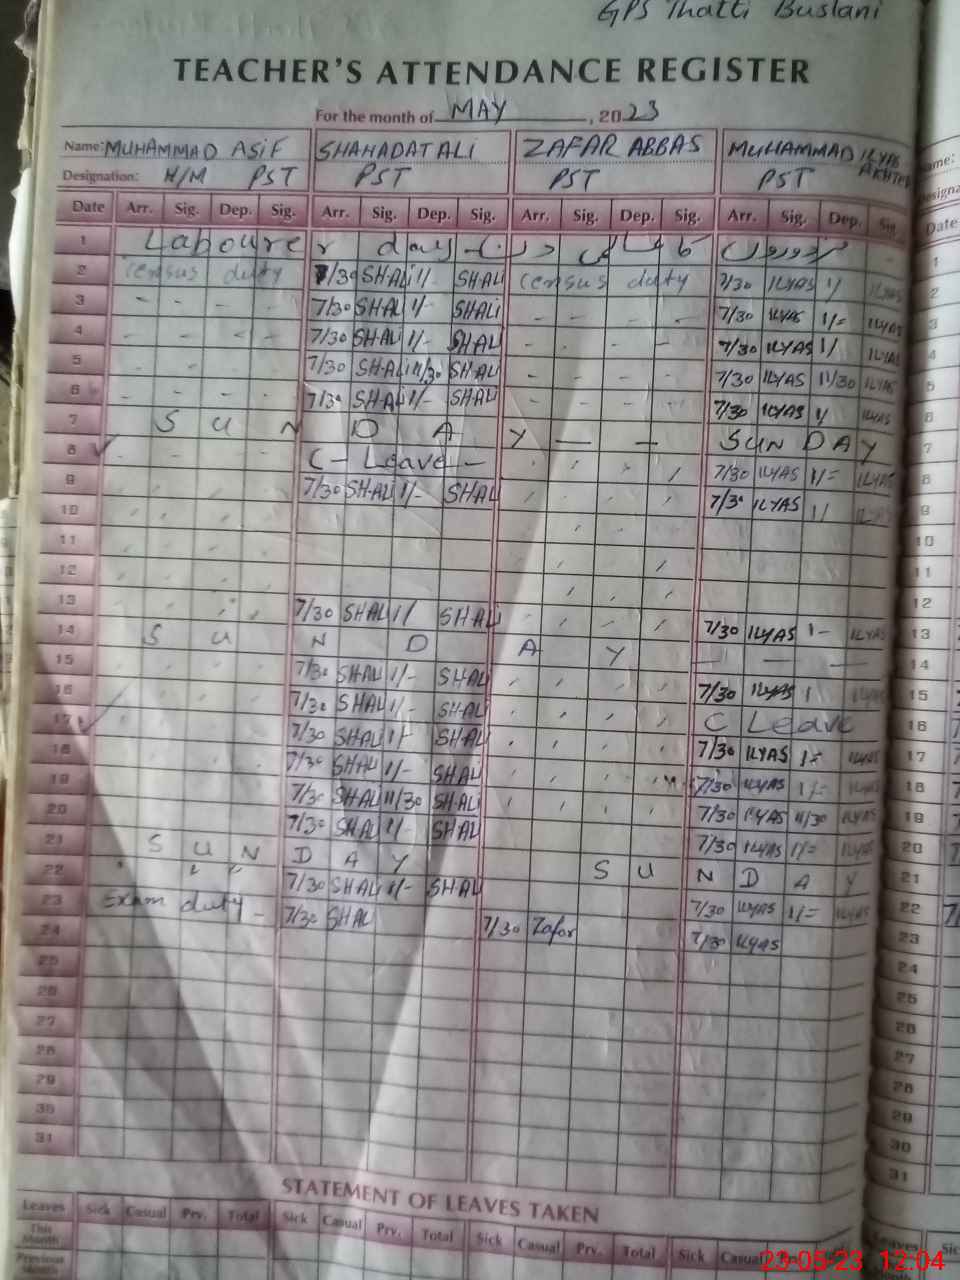 GPS Thatti Buslani
TEACHER'S ATTENDANCE REGISTER
For the month of MAY, 2023
Name: MUHAMMAD ASIF SHAHADAT ALI ZAFAR ABBAS MUHAMMAD ILYAS AKHTER
Designation: H/M PST PST PST PST
Date Arr. Sig. Dep. Sig. Arr. Sig. Dep. Sig. Arr. Sig. Dep. Sig. Arr. Sig. Dep. Sig. Date
1 Labourer day
2 Census duty 7/30 SHALI 1/- SHALI Census duty 7/30 ILYAS 1/ ILYAS
3 - - - - 7/30 SHALI 1/- SHALI - - - - 7/30 ILYAS 1/= ILYAS
4 - - - - 7/30 SHALI 1/- SHALI - - - - 7/30 ILYAS 1/ ILYAS
5 - - - - 7/30 SHALI 11/30 SHALI - - - - 7/30 ILYAS 11/30 ILYAS
6 - - - - 7/30 SHALI 1/- SHALI - - - - 7/30 ILYAS 1/ ILYAS
7 S U N D A Y — — SUNDAY
8 C - Leave - 7/30 ILYAS 1/= ILYAS
9 7/30 SHALI 1/- SHALI 7/30 ILYAS 1/ ILYAS
10
11
12
13 7/30 SHALI 1/ SHALI 7/30 ILYAS 1- ILYAS
14 S U N D A Y — — —
15 7/30 SHALI 1/- SHALI 7/30 ILYAS 1 ILYAS
16 7/30 SHALI 1/- SHALI C Leave
17 7/30 SHALI 1/- SHALI 7/30 ILYAS 1= ILYAS
18 7/30 SHALI 1/- SHALI 7/30 ILYAS 1/= ILYAS
19 7/30 SHALI 11/30 SHALI 7/30 ILYAS 11/30 ILYAS
20 7/30 SHALI 1/- SHALI 7/30 ILYAS 1/= ILYAS
21 S U N D A Y S U N D A Y
22 7/30 SHALI 1/- SHALI 7/30 ILYAS 1/= ILYAS
23 Exam duty - 7/30 SHAL 7/30 Zafar 7/30 ILYAS
24
25
26
27
28
29
30
31
STATEMENT OF LEAVES TAKEN
Leaves Sick Casual Prv. Total Sick Casual Prv. Total Sick Casual Prv. Total Sick Casual
This Month
Previous Month
23-05-23 12:04